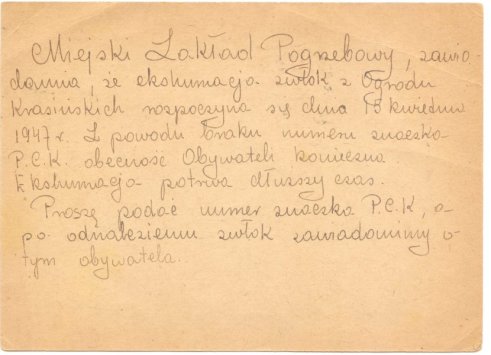 Miejski Zakład Pogrzebowy, zawia-
damia, że ekshumacja zwłok z Ogrodu
Krasińskich rozpoczyna się dnia 15 kwietnia
1947 r. Z powodu braku numeru znaczka
P.C.K. obecność Obywateli konieczna
Ekshumacja potrwa dłuższy czas.
Proszę podać numer znaczka P.C.K, a
po odnalezieniu zwłok zawiadomimy o
tym obywatela.